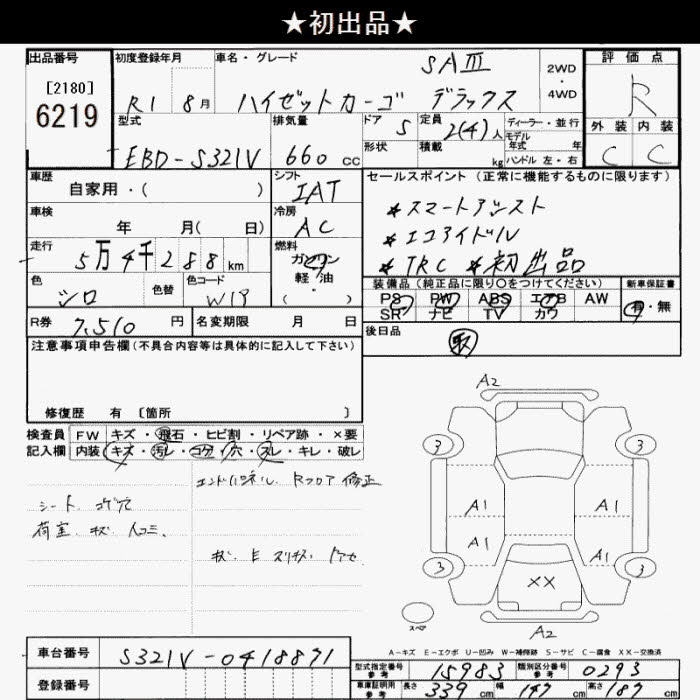 ★初出品★
出品番号
[2180]
6219
初度登録年月
R1 8月
車名・グレード
SAⅢ
ハイゼットカーゴ デラックス
2WD
・
4WD
評価点
R
外装 内装
C C
型式
EBD-S321V
排気量
660 cc
ドア
5
定員
2(4)人
ディーラー・並行
モデル
年式 年
形状
積載
kg
ハンドル 左・右
車歴
自家用・( )
シフト
IAT
セールスポイント (正常に機能するものに限ります)
*スマートアシスト
*エコアイドル
*TRC *初出品
車検
年 月( 日)
冷房
AC
走行
5万4千288km
燃料
ガソリン
軽・油
( ・ )
色
シロ
色替
色コード
W19
装備品 (純正品に限り○をつけてください)
PS PW ABS エアB AW
SR ナビ TV カワ
新車保証書
有・無
R券
7,510円
名変期限 月 日
後日品
取
注意事項申告欄 (不具合内容等は具体的に記入して下さい)
修復歴 有 [箇所 ]
検査員
記入欄
FW キズ・飛石・ヒビ割・リペア跡・×要
内装 キズ・汚レ・コゲ・穴・スレ・キレ・破レ
エンドパネル. Rフロア 修正
シート. コゲ穴
荷室. キズ. 凹コミ.
キズ. E スリキズ.
A2
3 3
A1 A1
A1 A1
3 3
××
スペア
A2
A-キズ E-エクボ U-凹み W-補修跡 S-サビ C-腐食 ××-交換済
車台番号
S321V-0418871
登録番号
型式指定番号
参考
15983
類別区分番号
参考
0293
車庫証明用
参考
長さ 339 cm 幅 147 cm 高さ 187 cm